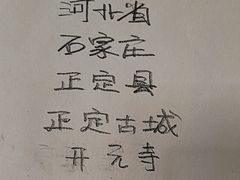 河北省
石家庄
正定县
正定古城
开元寺